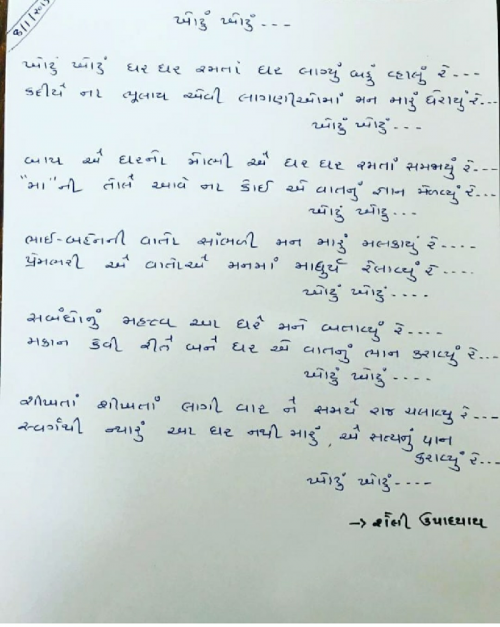 ખોટું ખોટું ---
ખોટું ખોટું ઘર ઘર રમતાં ઘર લાગ્યું બહું વ્હાલું રે---
કદીયે ના ભૂલાય એવી લાગણીઓમાં મન મારું ઘેરાયું રે---
ખોટું ખોટું---
બાપ એ ઘરનો મોભી એ ઘર ઘર રમતાં સમજાયું રે---
"મા"ની તોલે આવે ના કોઈ એ વાતનું જ્ઞાન મેળવ્યું રે---
ખોટું ખોટું---
ભાઈ-બહેનની વાતો સાંભળી મન મારું મલકાયું રે----
પ્રેમભરી એ વાતોએ મનમાં માધુર્ય રેલાવ્યું રે----
ખોટું ખોટું----
સબંધોનું મહત્વ આ ઘરે મને બતાવ્યું રે----
મકાન કેવી રીતે બને ઘર એ વાતનું ભાન કરાવ્યું રે---
ખોટું ખોટું----
શીખતાં શીખતાં લાગી વાર ને સમયે રાજ ચલાવ્યુ રે---
સ્વર્ગથી ન્યારું આ ઘર નથી મારું, એ સત્યનું પાન
કરાવ્યું રે---
ખોટું ખોટું----
→ શૈલી ઉપાધ્યાય